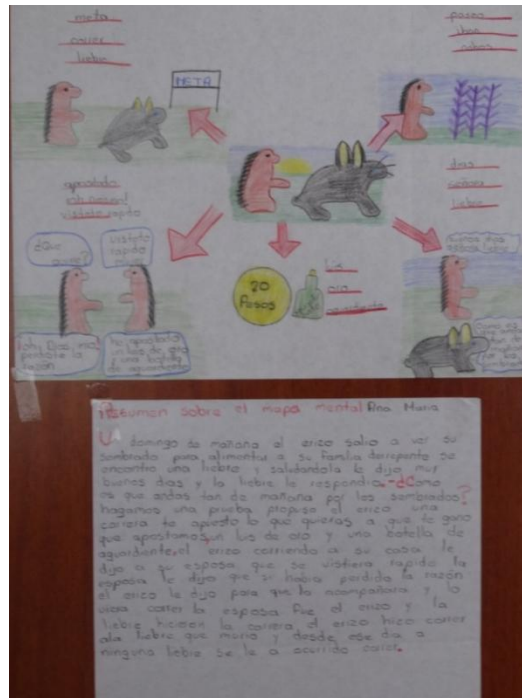 meta
correr
liebre
META
paseo
dias
señora
liebre
apostado
vistete rapido
¿Que
vistete
rapido
mujer
¡oh, Dios mio,
perdiste la
razón
he apostado
un luis de oro
y una botella
de aguardiente
20
Pesos
Luis
oro
aguardiente
buenos dias
señora liebre
Como es
Resumen sobre el mapa mental Ana Maria
Un domingo de mañana el erizo salio a ver su
sembrado para alimentar a su familia derrepente se
encontro una liebre y saludandola le dijo muy
buenos dias y la liebre le respondio.-¿Como
es que andas tan de mañana por los sembrados?
hagamos una prueba propuso el erizo una
carrera te apuesto lo que quieras a que te gano
que apostamos,un luis de oro y una botella de
aguardiente.el erizo corriendo a su casa le
dijo a su esposa que se vistiera rapido la
esposa le dijo que si habia perdido la razón
el erizo le dijo para que la acompañara y lo
viera correr la esposa fue el erizo y la
liebre hicieon la carrera el erizo hizo correr
ala liebre que murio y desde ese dia a
ninguna liebre se le a ocurrido correr.